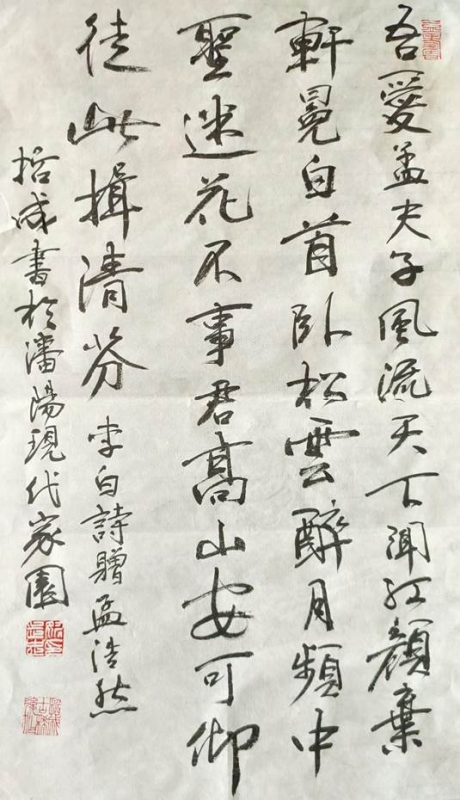 吾愛孟夫子風流天下聞紅顏棄
軒冕白首臥松雲醉月頻中
聖迷花不事君高山安可仰
徒此揖清芬
李白詩贈孟浩然
哲成書於瀋陽現代家園